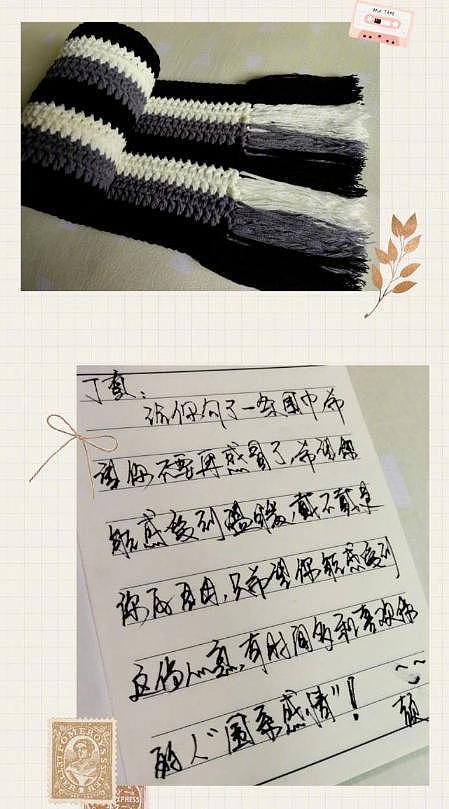 MIX TAPE
丁真：
给你勾了一条围巾希
望你不要再感冒了，希望你
能感受到温暖，戴不戴是
你的自由，只希望你能感受到
这份心意，有时间多和喜欢你
的人“围系感情”！
颜
POMEROY'S
LETTER
EXPRESS